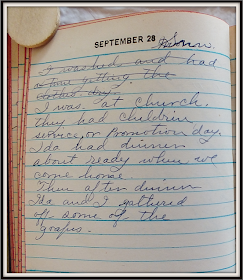 SEPTEMBER 28 Sun.
I washed and had
a time getting the
clothes dry.
I was at church,
they had children
service or Promotion day.
Ida had dinner
about ready when we
come home.
Then after dinner
Ida and I gathered
off some of the
grapes.